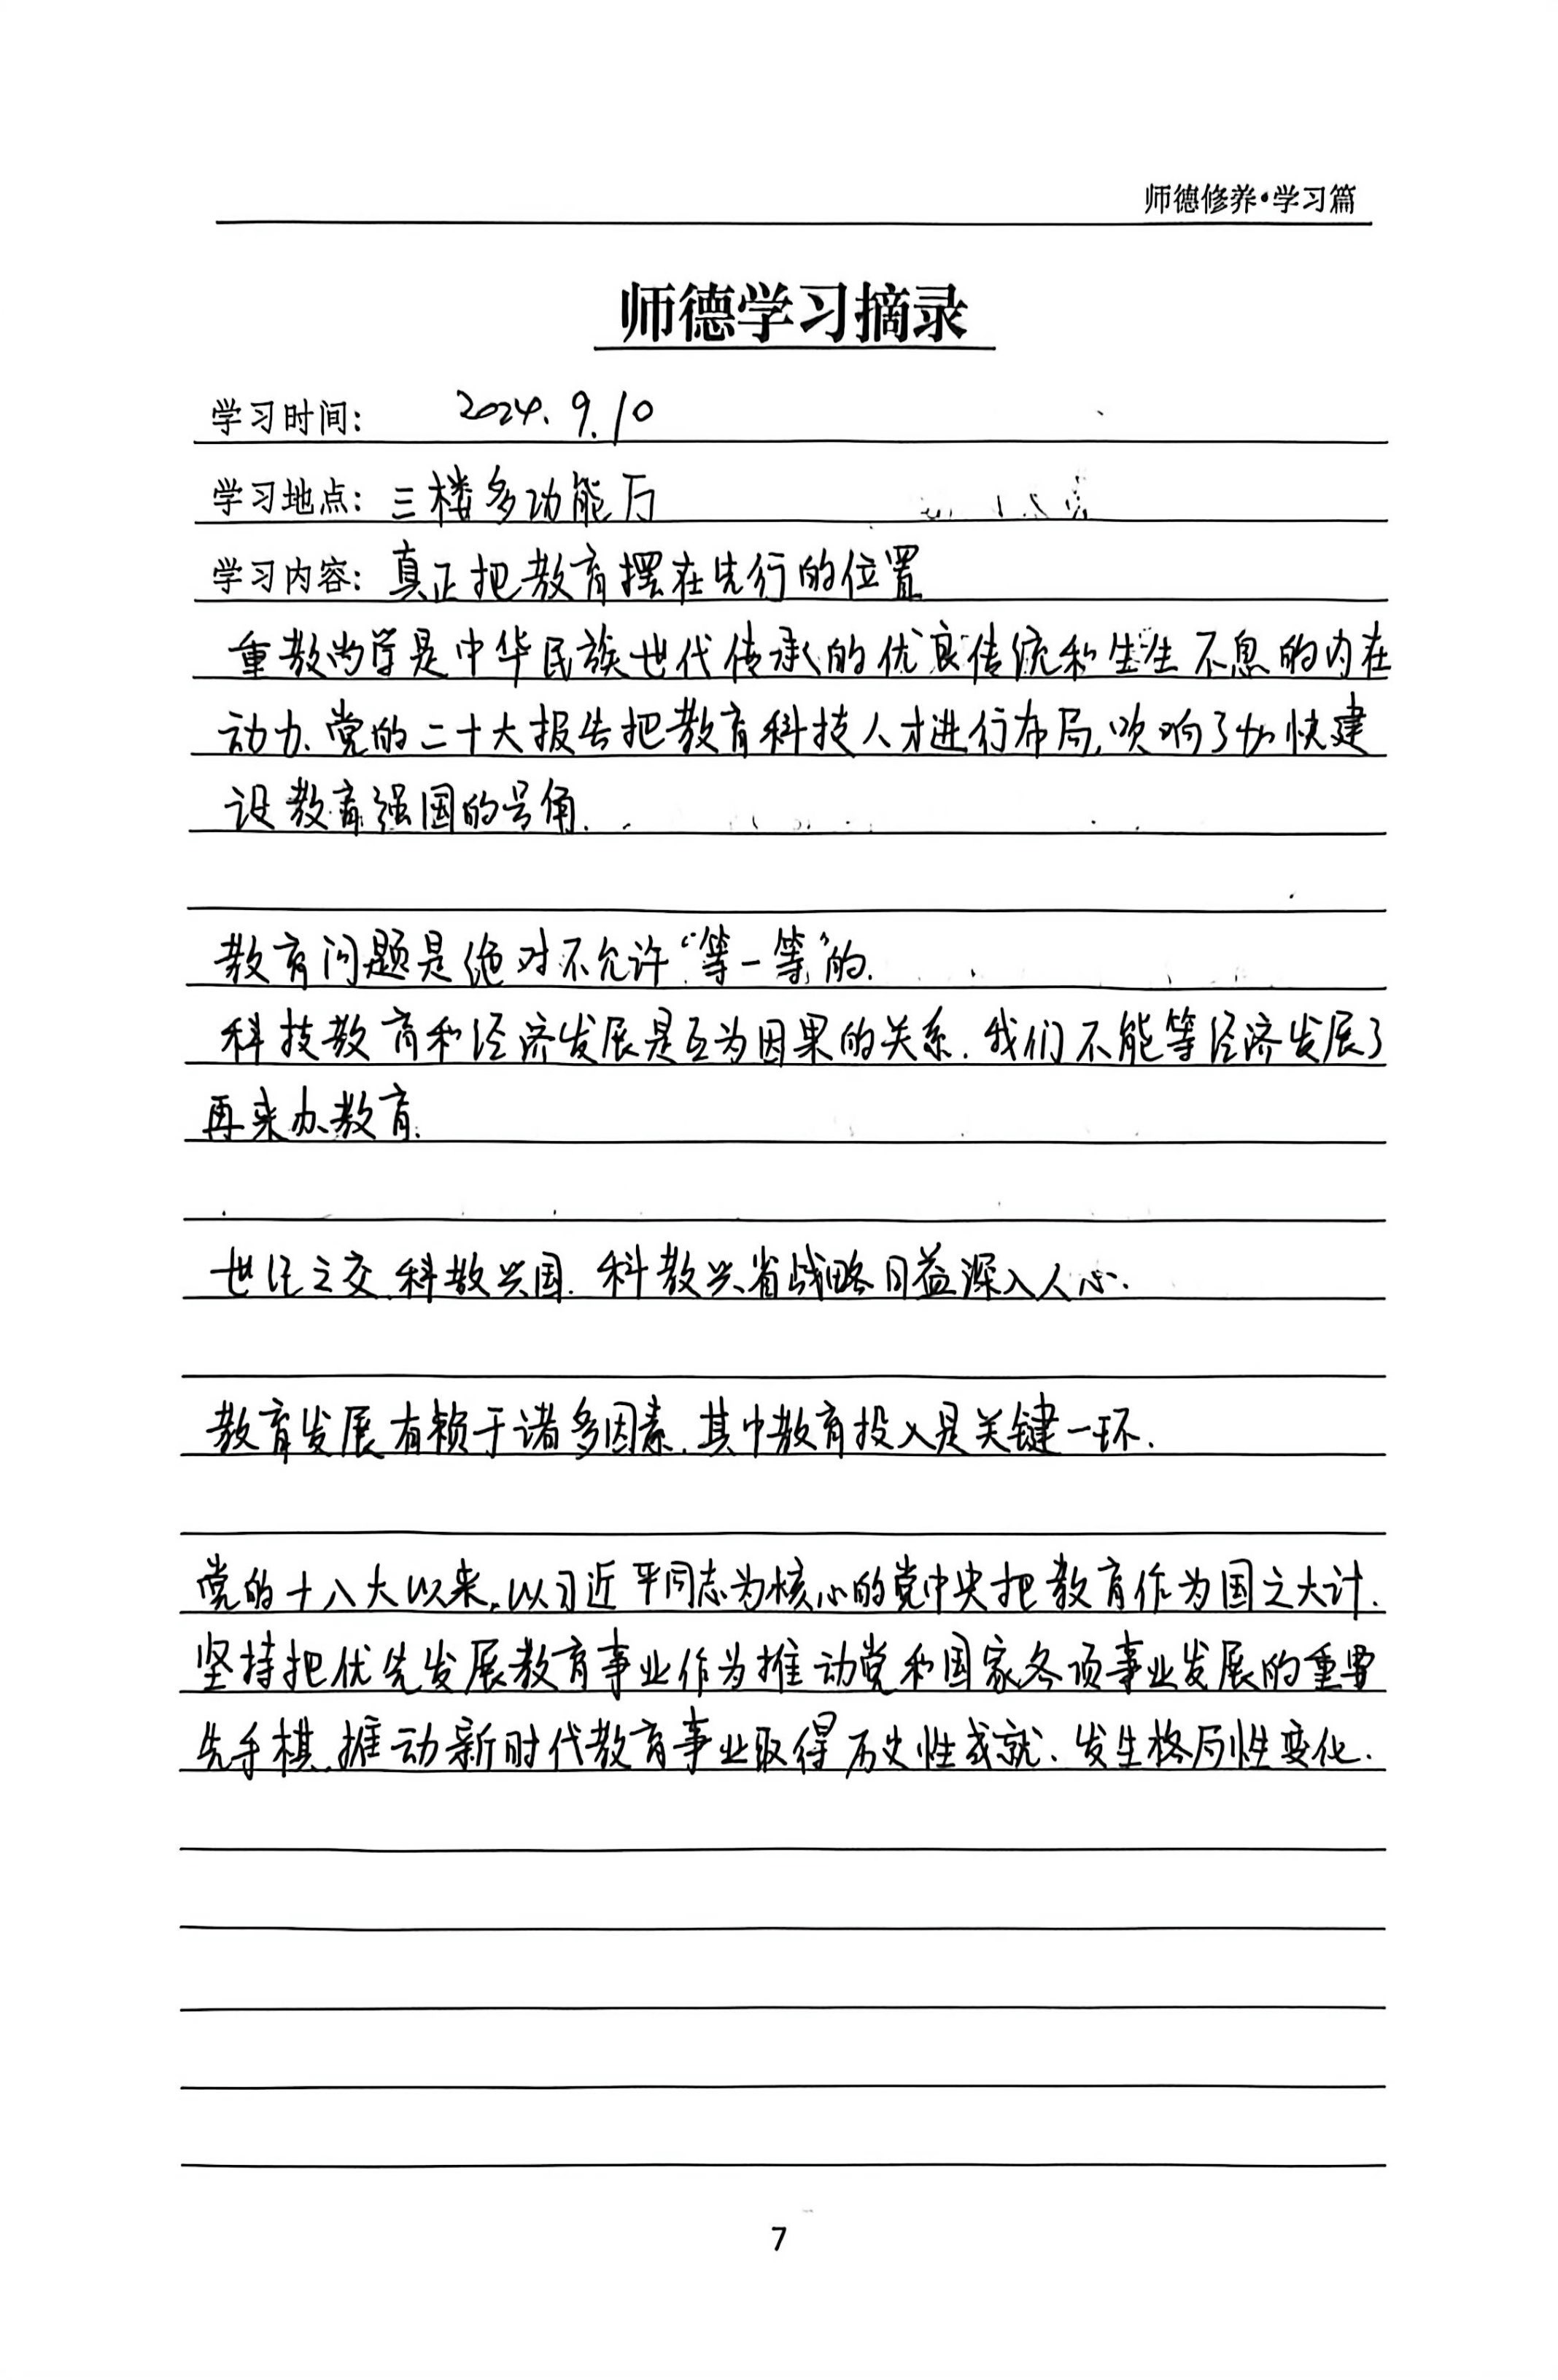 师德修养·学习篇
师德学习摘录
学习时间： 2024.9.10
学习地点：三楼多功能厅
学习内容：真正把教育摆在先行的位置
重教尚学是中华民族世代传承的优良传统和生生不息的内在
动力、党的二十大报告把教育科技人才进行布局,吹响了加快建
设教育强国的号角.
教育问题是绝对不允许“等一等”的.
科技教育和经济发展是互为因果的关系.我们不能等经济发展了
再来办教育.
世纪之交.科教兴国.科教兴省战略日益深入人心.
教育发展有赖于诸多因素.其中教育投入是关键一环.
党的十八大以来,以习近平同志为核心的党中央把教育作为国之大计.
坚持把优先发展教育事业作为推动党和国家各项事业发展的重要
先手棋.推动新时代教育事业取得历史性成就.发生格局性变化.
7